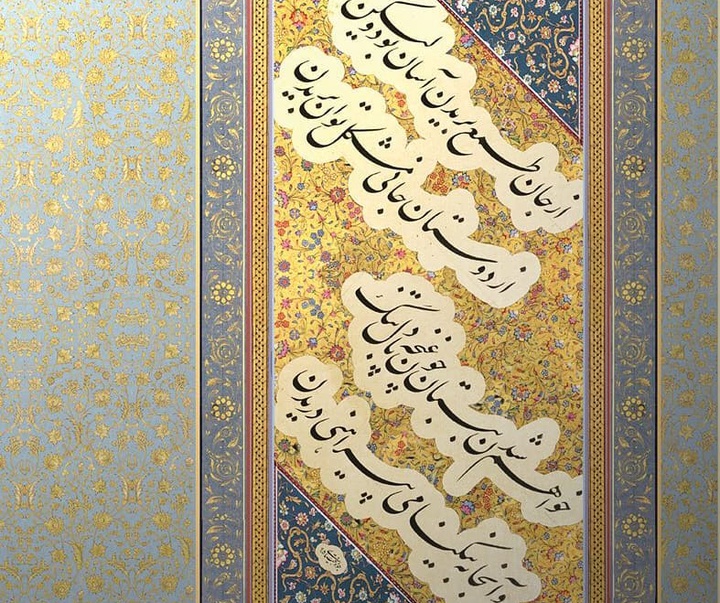 از جان طمع بریدن آسان بود ولیکن
از دوستان جانی مشکل توان بریدن
خواهم شدن ببستان چون غنچه با دل تنگ
وآنجا به نیکنامی پیراهنی دریدن